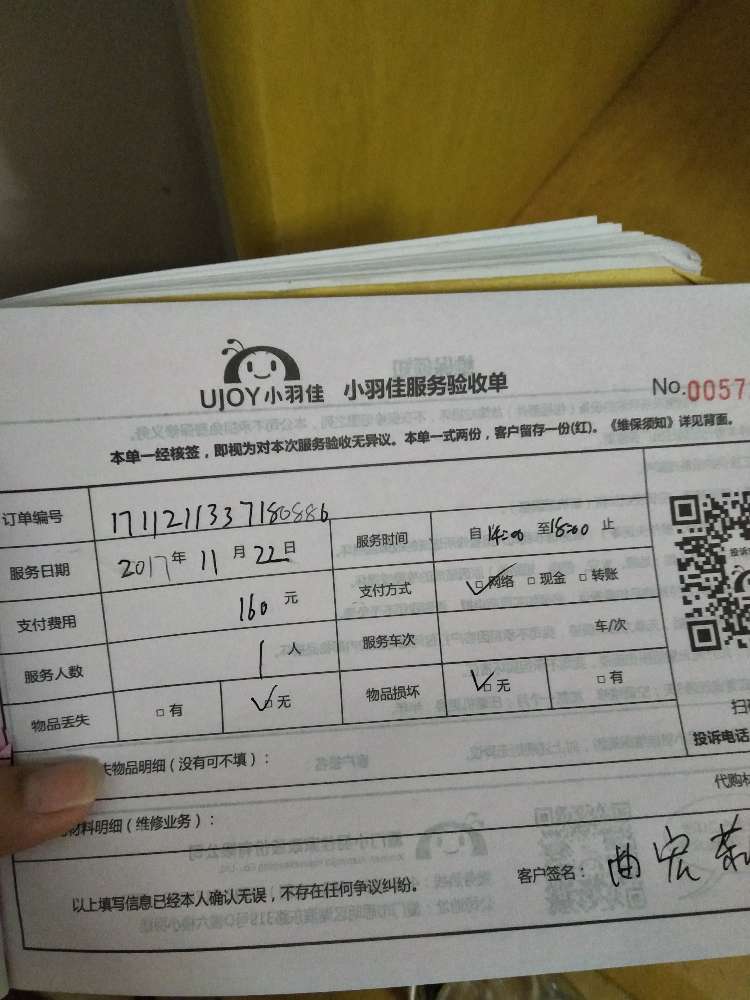 UJOY小羽佳 小羽佳服务验收单 No.0057
本单一经核签，即视为对本次服务验收无异议。本单一式两份，客户留存一份(红)。《维保须知》详见背面。
订单编号 1711211337180886
服务日期 2017年11月22日 服务时间 自14:00至18:00止
支付费用 160元 支付方式 ☑网络 □现金 □转账
服务人数 1人 服务车次 车/次
物品丢失 □有 ☑无 物品损坏 ☑无 □有
投诉
扫
投诉电话
失物品明细（没有可不填）：
代购材
材料明细（维修业务）：
以上填写信息已经本人确认无误，不存在任何争议纠纷。 客户签名：曲宏